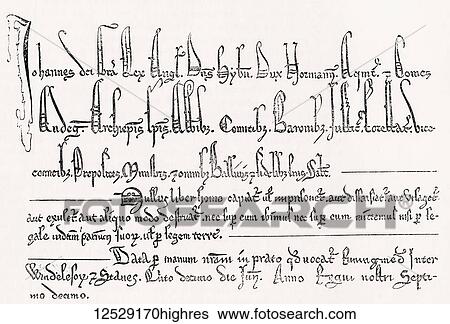 Johannes dei gra Rex Angl. Dns Hybn. Dux Normann. Aqmt. z Comes
Andeg. Archiepis. Epis. Abbibz. Comitibz. Baronibz. Justic. Forestar. vice
comitibz. Prepositis. Ministris. z omnibz Ballivis z fidelibz suis Salt.
Nullus liber homo capiat. ut imprisonet. aut disseisiat. aut utlaget.
aut exulet. aut aliquo modo destruat. nec sup eum ibimus nec sup eum mittemus nisi p le
gale judicium parium suor. ut p legem terre.
Data p manum nram in prato qd vocat. Runingmed. inter
Windelesor. z Stanes. Quinto decimo die Jun. Anno Regni nostri Septi
mo decimo.
fotosearch
12529170highres www.fotosearch.com